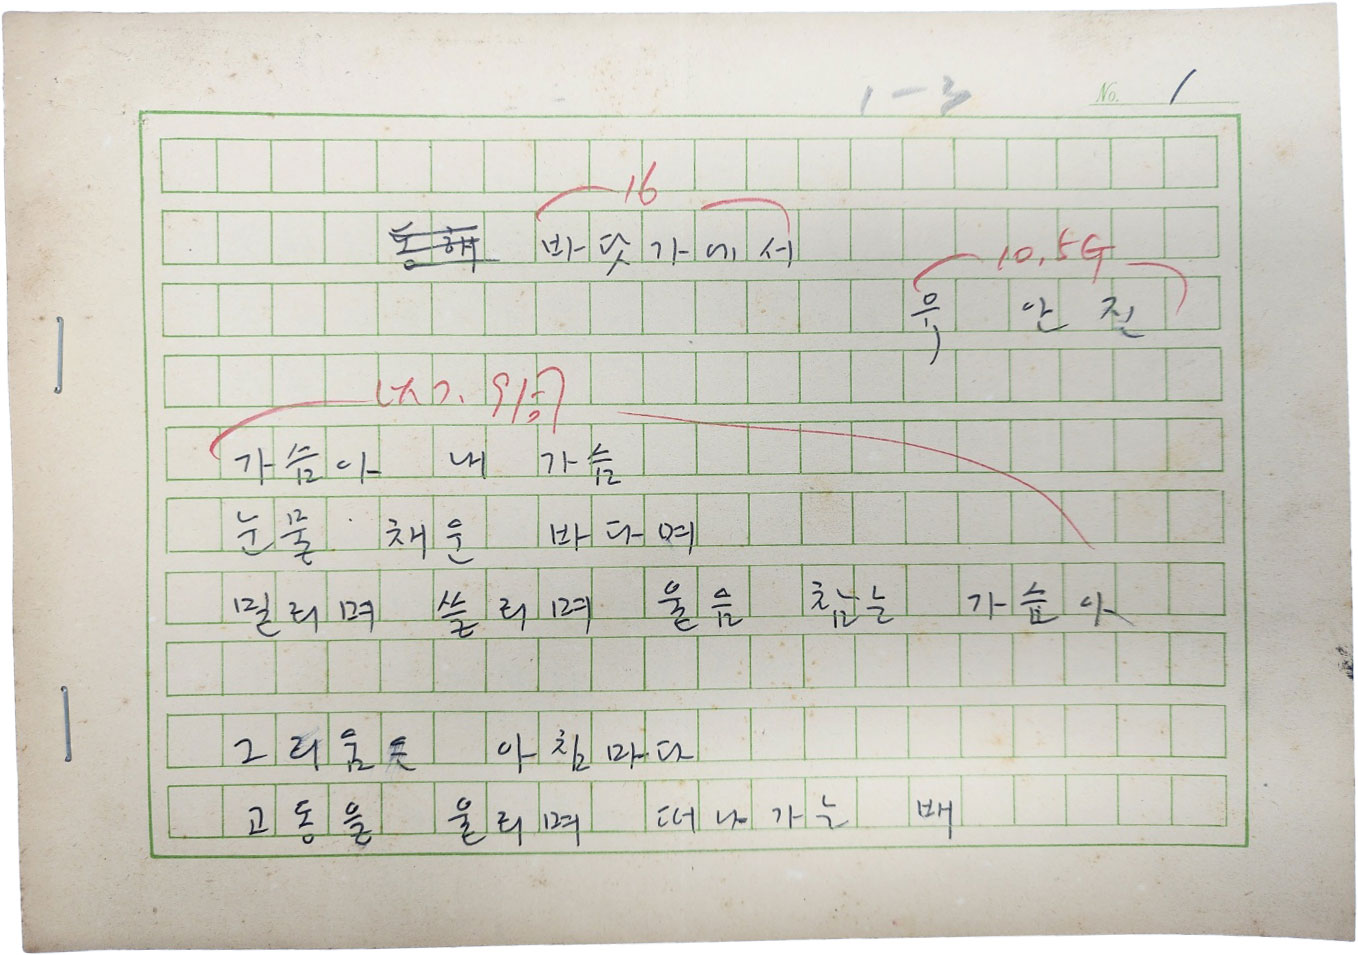 1-3 No. 1
16
동해 바닷가에서
10.5G
유 안 진
가슴아 내 가슴
눈물 채운 바다며
밀리며 쓸리며 울음 참는 가슴아
그리움은 아침마다
고동을 울리며 떠나가는 배